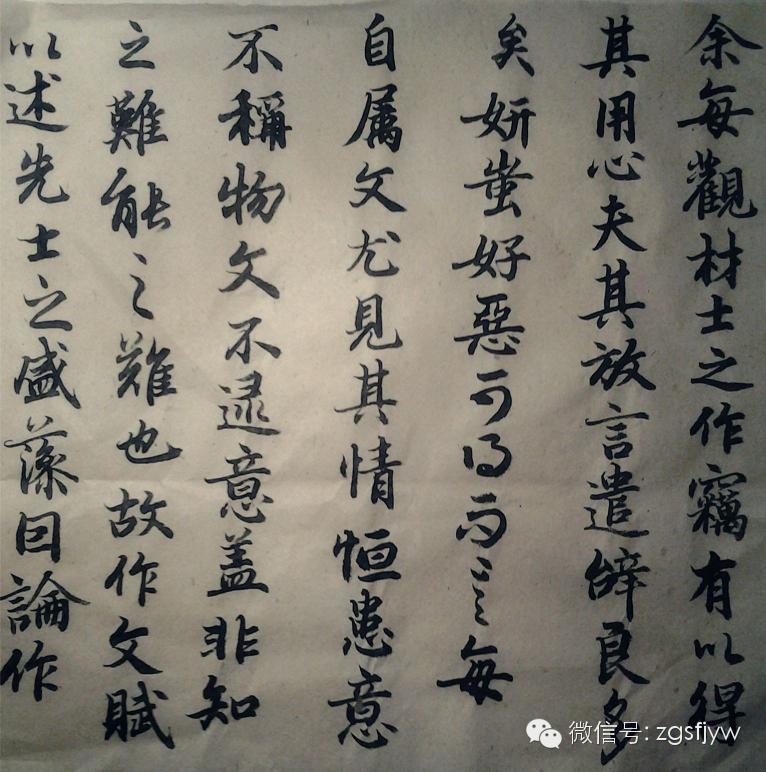 余每觀材士之作竊有以得
其用心夫其放言遣辭良多
矣妍蚩好惡可得而言每
自属文尤見其情恒患意
不稱物文不逮意盖非知
之難能之難也故作文賦
以述先士之盛藻因論作
微信号: zgsfjyw